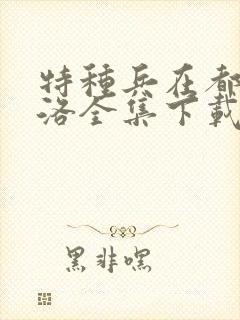 特种兵在都
洛全集下载
黑非嘿